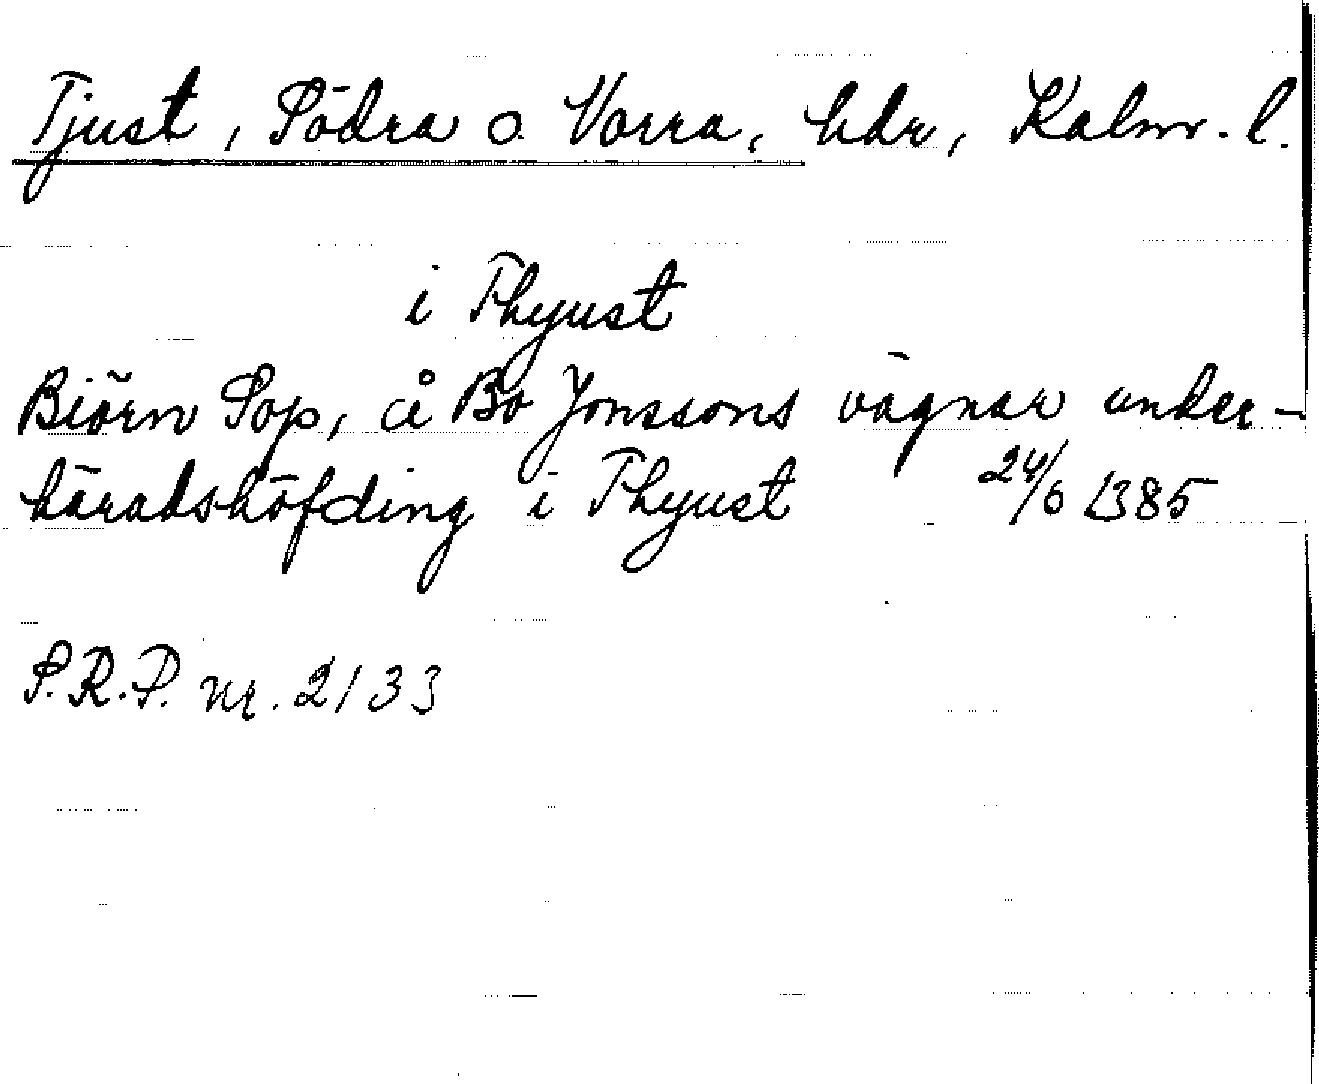 Tjust, Södra o. Norra, hdr, Kalm. l.
i Thyust
Biörn Sop, å Bo Jonssons vägnar under-
häradshöfding i Thyust 24/6 1385
S.R.P. nr. 2133